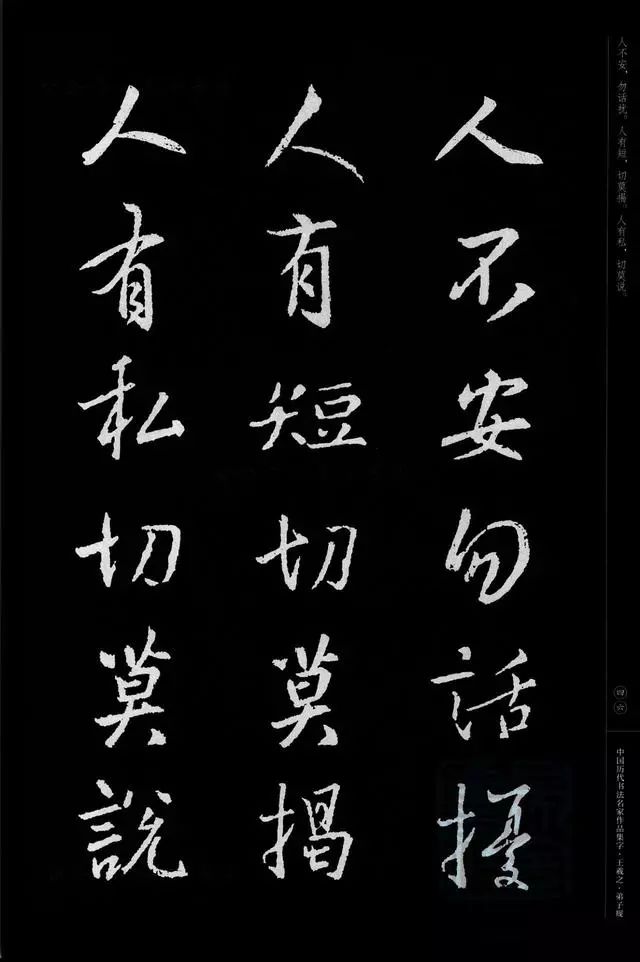 人不安勿話擾
人有短切莫揭
人有私切莫說
人不安，勿话扰。人有短，切莫揭。人有私，切莫说。
四六
中国历代书法名家作品集字·王羲之·弟子规